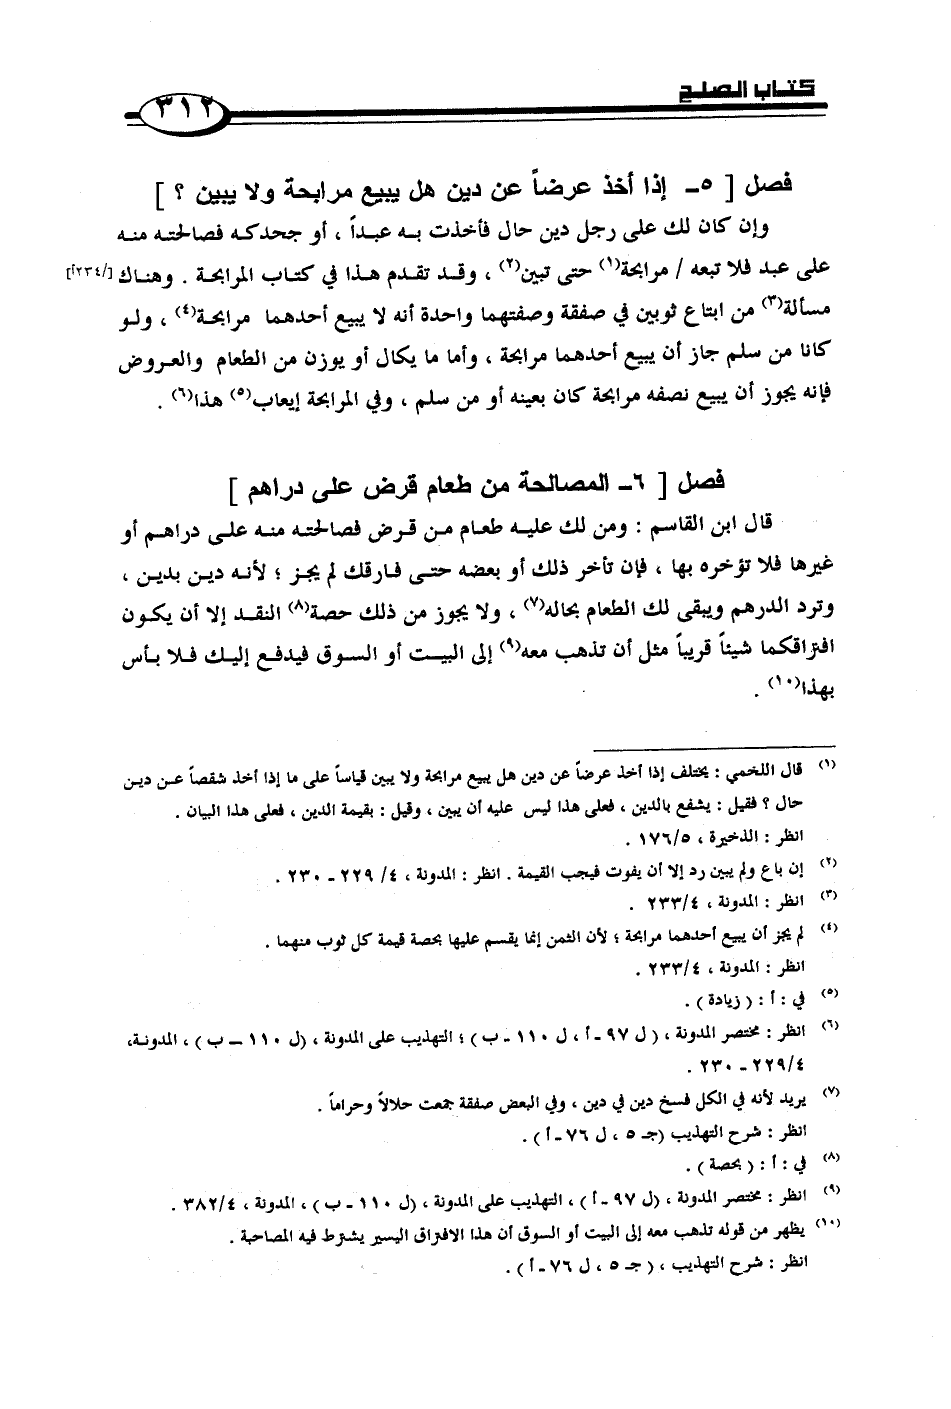 كتاب الصلح
٣١٢
فصل [ ٥ـ إذا أخذ عرضاً عن دين هل يبيع مرابحة ولا يبين ؟ ]
وإن كان لك على رجل دين حال فأخذت به عبداً ، أو جحدكه فصالحته منه
على عبد فلا تبعه / مرابحة(١) حتى تبين(٢) ، وقد تقدم هذا في كتاب المرابحة . وهناك [/٢٣٤أ]
مسألة(٣) من ابتاع ثوبين في صفقة وصفتهما واحدة أنه لا يبيع أحدهما مرابحة(٤) ، ولو
كانا من سلم جاز أن يبيع أحدهما مرابحة ، وأما ما يكال أو يوزن من الطعام والعروض
فإنه يجوز أن يبيع نصفه مرابحة كان بعينه أو من سلم ، وفي المرابحة إيعاب(٥) هذا(٦) .
فصل [ ٦ـ المصالحة من طعام قرض على دراهم ]
قال ابن القاسم : ومن لك عليه طعام من قرض فصالحته منه على دراهم أو
غيرها فلا تؤخره بها ، فإن تأخر ذلك أو بعضه حتى فارقك لم يجز ؛ لأنه دين بدين ،
وترد الدرهم ويبقى لك الطعام بحاله(٧) ، ولا يجوز من ذلك حصة(٨) النقد إلا أن يكون
افتراقكما شيئاً قريباً مثل أن تذهب معه(٩) إلى البيت أو السوق فيدفع إليك فلا بأس
بهذا(١٠) .
(١) قال اللخمي : يختلف إذا أخذ عرضاً عن دين هل يبيع مرابحة ولا يبين قياساً على ما إذا أخذ شقصاً عن دين
حال ؟ فقيل : يشفع بالدين ، فعلى هذا ليس عليه أن يبين ، وقيل : بقيمة الدين ، فعلى هذا البيان .
انظر : الذخيرة ، ١٧٦/٥ .
(٢) إن باع ولم يبين رد إلا أن يفوت فيجب القيمة . انظر : المدونة ، ٤/ ٢٢٩ ـ ٢٣٠ .
(٣) انظر : المدونة ، ٢٣٣/٤ .
(٤) لم يجز أن يبيع أحدهما مرابحة ؛ لأن الثمن إنما يقسم عليها بحصة قيمة كل ثوب منهما .
انظر : المدونة ، ٢٣٣/٤ .
(٥) في : أ : ( زيادة ) .
(٦) انظر : مختصر المدونة ، ( ل ٩٧ ـ أ ، ل ١١٠ ـ ب ) ؛ التهذيب على المدونة ، (ل ١١٠ ــ ب ) ، المدونة،
٢٢٩/٤ ـ ٢٣٠ .
(٧) يريد لأنه في الكل فسخ دين في دين ، وفي البعض صفقة جمعت حلالاً وحراماً .
انظر : شرح التهذيب (جـ ٥ ، ل ٧٦ ـ أ ) .
(٨) في : أ : ( بحصة ) .
(٩) انظر : مختصر المدونة ، (ل ٩٧ ـ أ ) ، التهذيب على المدونة ، (ل ١١٠ ـ ب ) ، المدونة ، ٣٨٢/٤ .
(١٠) يظهر من قوله تذهب معه إلى البيت أو السوق أن هذا الافتراق اليسير يشترط فيه المصاحبة .
انظر : شرح التهذيب ، ( جـ ٥ ، ل ٧٦ ـ أ ) .